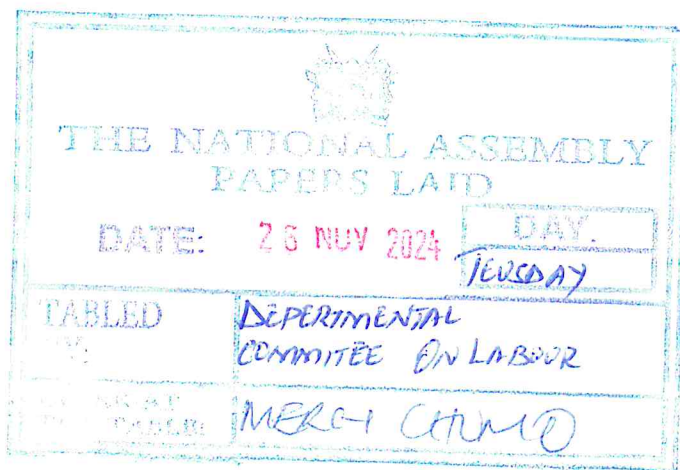 THE NATIONAL ASSEMBLY
PAPERS LAID
DATE: 26 NOV 2024 DAY.
TEUSDAY
TABLED DEPERTMENTAL
COMMITEE ON LABOUR
AT
TABLE: MERCY CHUMO